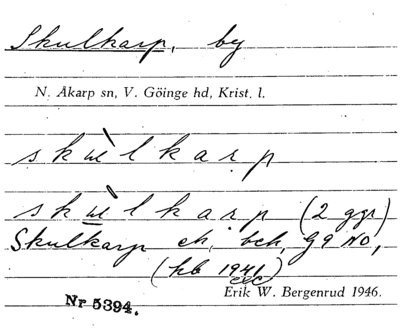 Skulkarp, by
N. Åkarp sn, V. Göinge hd, Krist. l.
skùlkarp
skùlkarp (2 ggr)
Skulkarp ek. bek. G9 NO,
(hb 1941)
Erik W. Bergenrud 1946.
Nr 5394.